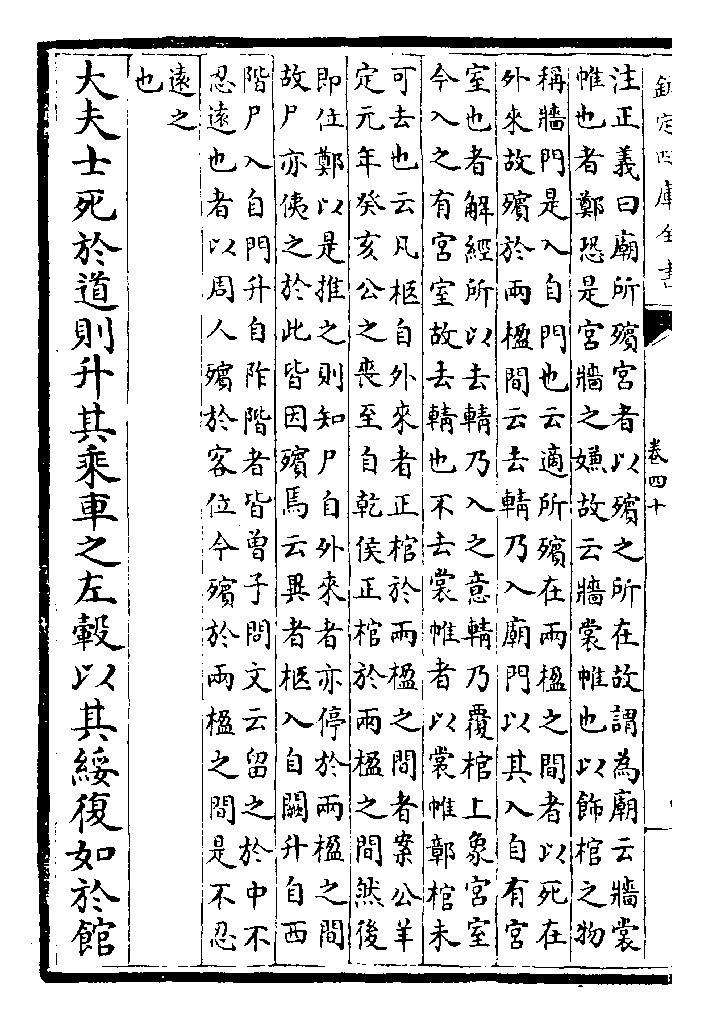 欽定四庫全書
卷四十
注正義曰廟所殯宮者以殯之所在故謂為廟云牆裳
帷也者鄭恐是宮牆之嫌故云牆裳帷也以飾棺之物
稱牆門是入自門也云適所殯在兩楹之間者以死在
外來故殯於兩楹間云去輤乃入廟門以其入自有宮
室也者解經所以去輤乃入之意輤乃覆棺上象宮室
今入之有宮室故去輤也不去裳帷者以裳帷鄣棺未
可去也云凡柩自外來者正棺於兩楹之間者案公羊
定元年癸亥公之喪至自乾侯正棺於兩楹之間然後
即位鄭以是推之則知尸自外來者亦停於兩楹之間
故尸亦侇之於此皆因殯焉云異者柩入自闕升自西
階尸入自門升自阼階者皆曾子問文云留之於中不
忍遠也者以周人殯於客位今殯於兩楹之間是不忍
遠之
也
大夫士死於道則升其乘車之左轂以其綏復如於館